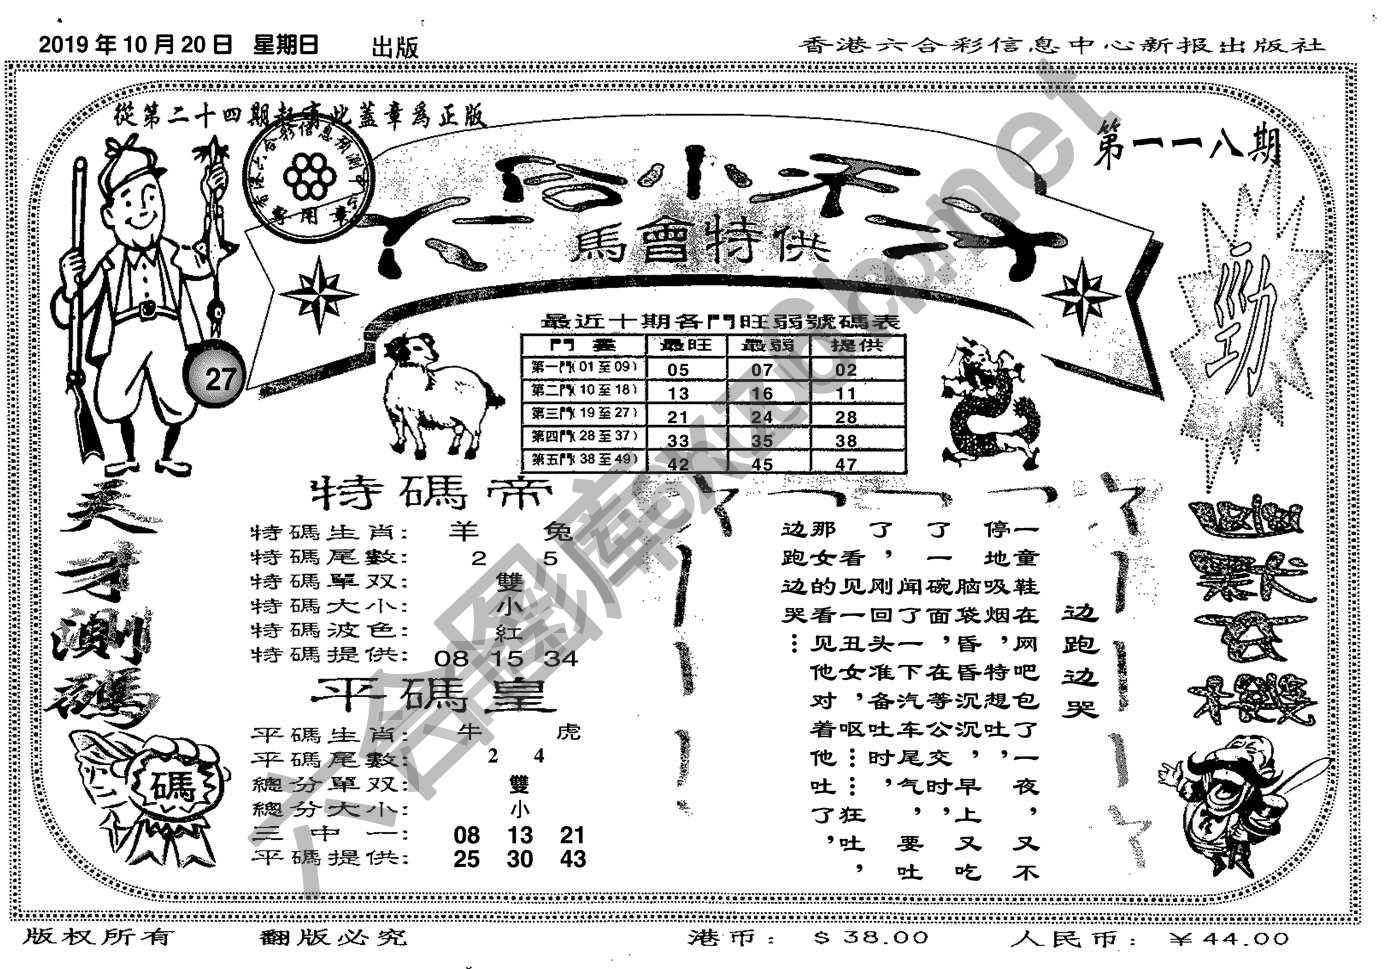 2019年10月20日 星期日 出版
香港六合彩信息中心新报出版社
從第二十四期起蓋此蓋章爲正版
第一一八期
馬會特供
勁
27
最近十期各門旺弱號碼表
門彙 最旺 最弱 提供
第一門(01至09) 05 07 02
第二門(10至18) 13 16 11
第三門(19至27) 21 24 28
第四門(28至37) 33 35 38
第五門(38至49) 42 45 47
天才測碼
碼
特碼帝
特碼生肖: 羊 兔
特碼尾數: 2 5
特碼單双: 雙
特碼大小: 小
特碼波色: 紅
特碼提供: 08 15 34
平碼皇
平碼生肖: 牛 虎
平碼尾數: 2 4
總分單双: 雙
總分大小: 小
三中一: 08 13 21
平碼提供: 25 30 43
边跑边哭
一童鞋在网吧包了一夜，又不
停地吸烟，特想吐，
脑袋昏昏沉沉，早上又吃
了一碗面，在等公交时，
闻了一下汽车尾气，要吐
了，刚回头准备吐时，
看见一丑女，呕……狂吐，
那女的看见他对着他吐了，
边跑边哭…
版权所有 翻版必究 港币: $38.00 人民币: ¥44.00